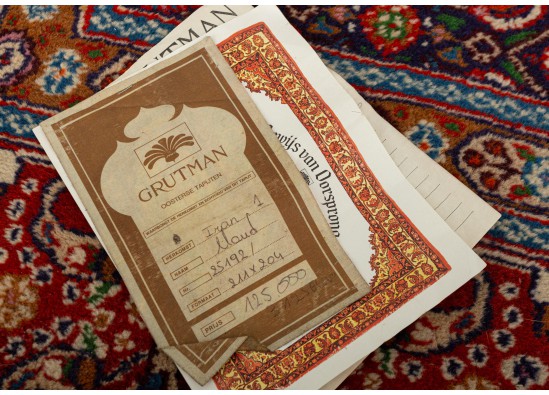 GRUTMAN
GRUTMAN
OOSTERSE TAPIJTEN
HERKOMST Iran
NAAM Moud
NR. 25192/1
FORMAAT 211 x 204
PRIJS 125 000
Bewijs van Oorsprong